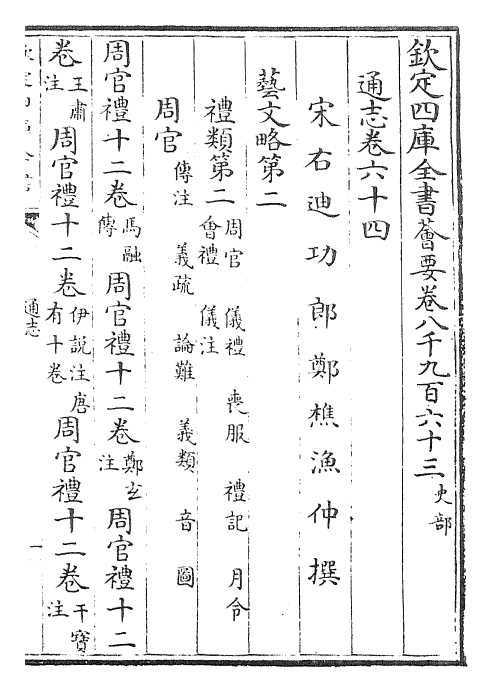 欽定四庫全書薈要卷八千九百六十三 史部
通志卷六十四
宋右迪功郎鄭樵漁仲撰
藝文略第二
禮類第二 周官 儀禮 喪服 禮記 月令 會禮 儀注
周官 傳注 義疏 論難 義類 音 圖
周官禮十二卷 馬融傳 周官禮十二卷 鄭玄注 周官禮十二
卷 王肅注 周官禮十二卷 伊說注唐有十卷 周官禮十二卷 干寶注
通志
一